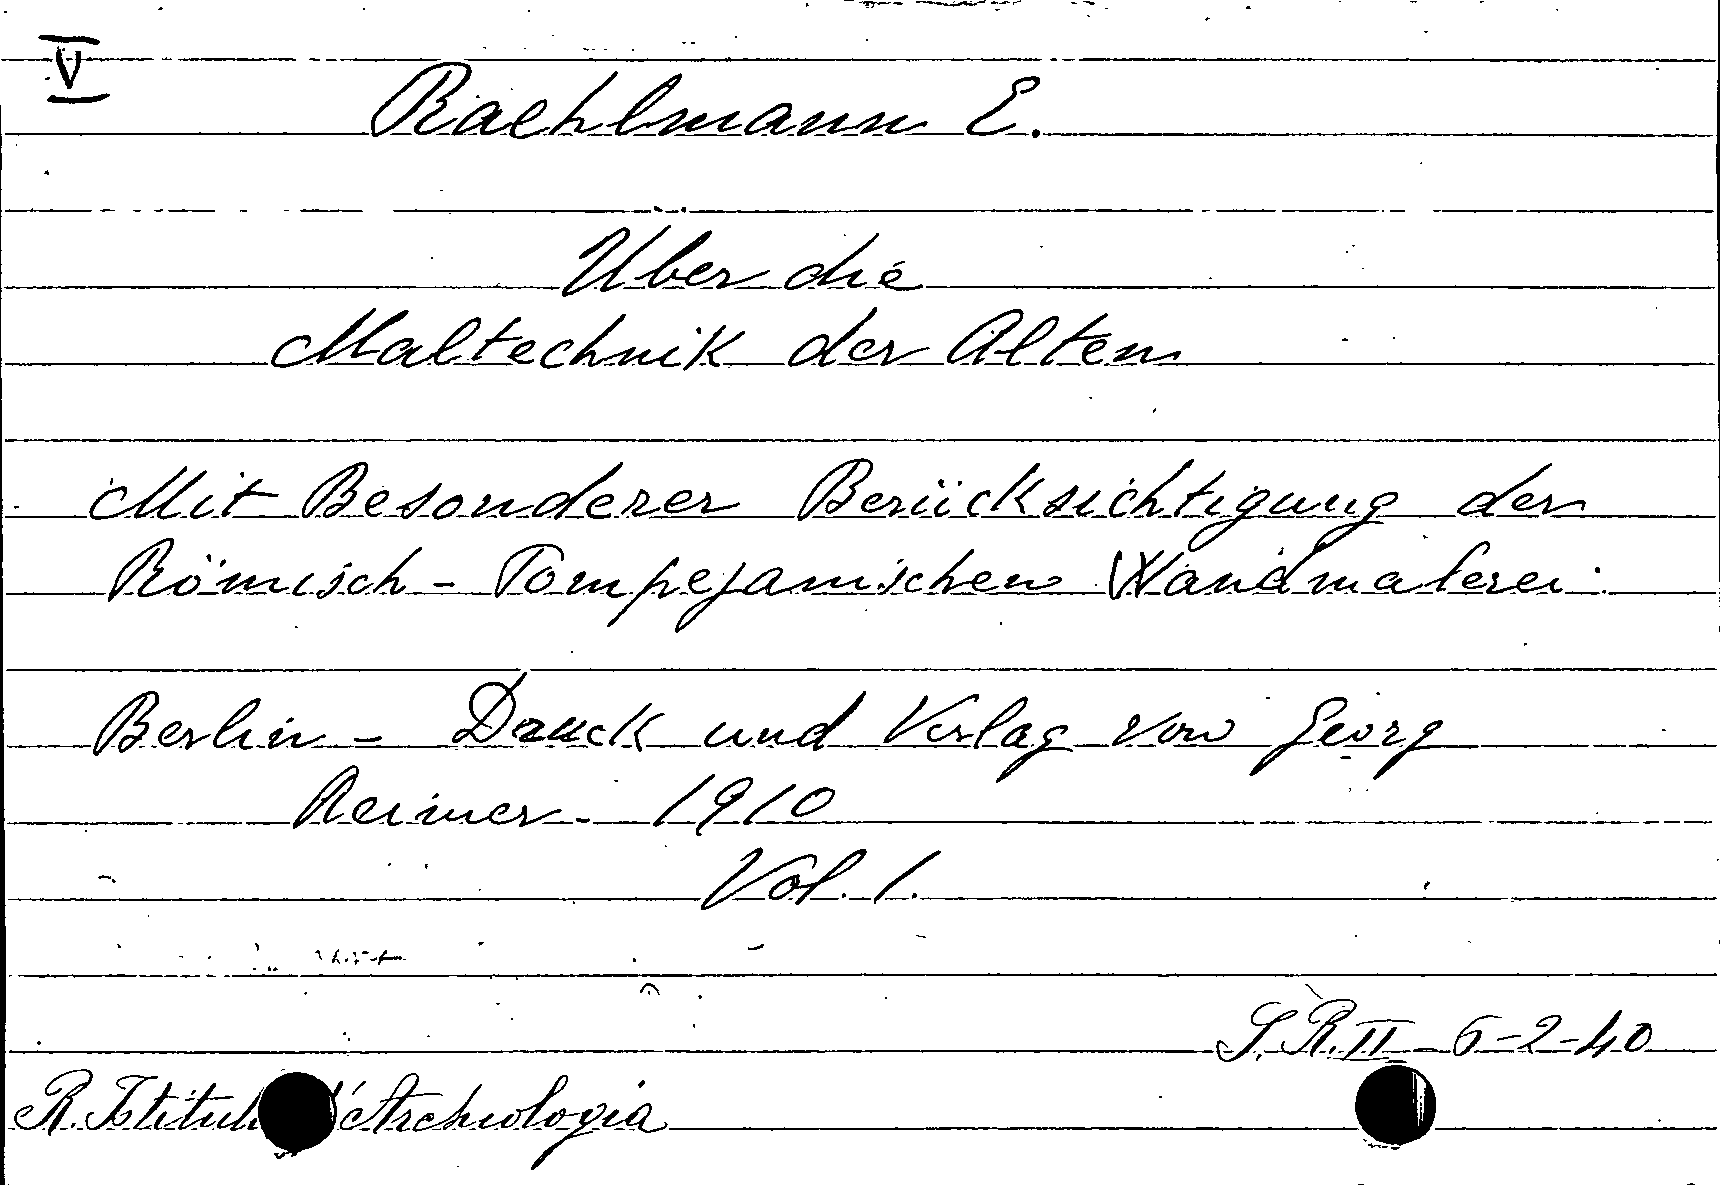 V
Raehlmann E.
Über die
Maltechnik der Alten
Mit Besonderer Berücksichtigung der
Römisch - Pompejanischen Wandmalerei.
Berlin - Druck und Verlag von Georg
Reimer - 1910
Vol. 1.
S. R. II - 6-2-40
R. Istitut d'Archeologia